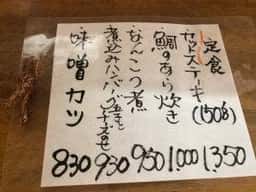 定食
・カットステーキ(150g) 1.350
・鯛のあら炊き 1.000
・なんこつ煮 950
・煮込みハンバーグ玉子とチーズのせ 930
・味噌カツ 830